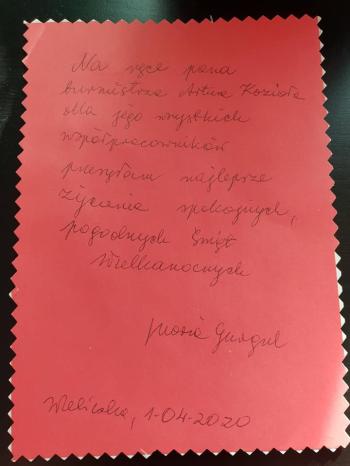 Na ręce pana
burmistrza Artura Kozioła
dla jego wszystkich
współpracowników
przesyłam najlepsze
życzenia spokojnych,
pogodnych Świąt
Wielkanocnych
Maria Gurgul
Wieliczka, 1-04-2020